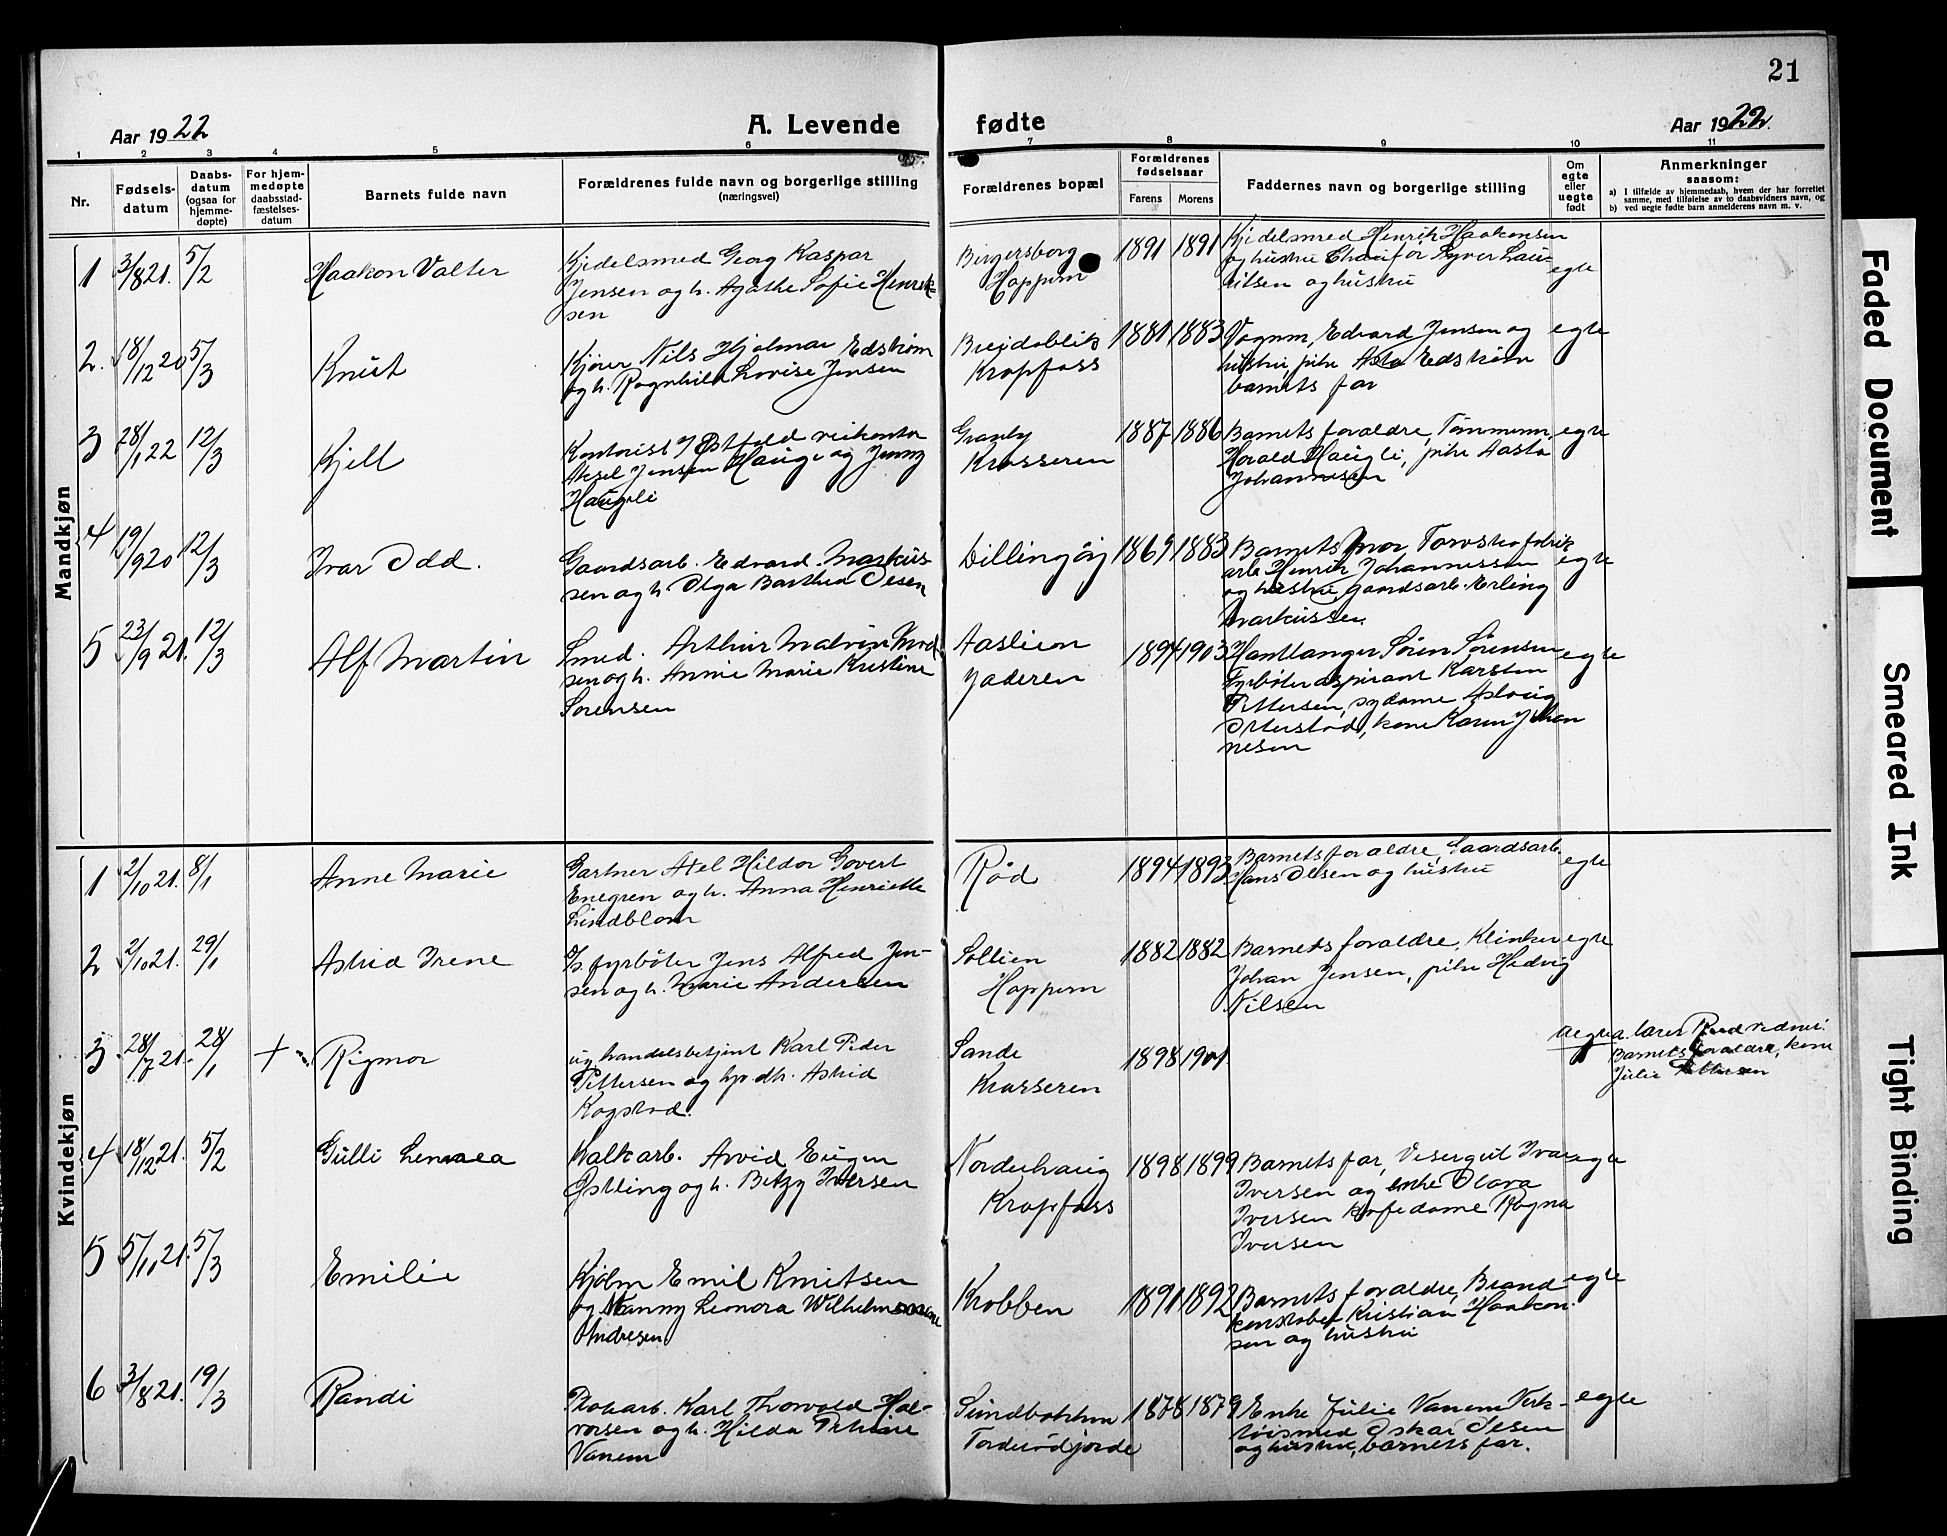 21
Aar 1922
A. Levende
fødte
Aar 1922.
1 2 3 4 5 6 7 8 9 10 11
Nr.
Fødsels-
datum
Daabs-
datum
(ogsaa for
hjemme-
døpte)
For hjem-
medøpte
daabsstad-
fæstelses-
datum
Barnets fulde navn
Forældrenes fulde navn og borgerlige stilling
(næringsvei)
Forældrenes bopæl
Forældrenes
fødselsaar
Farens
Morens
Faddernes navn og borgerlige stilling
Om
egte
eller
uegte
født
Anmerkninger
saasom:
a) I tilfælde av hjemmedaab, hvem der har forrettet
samme, med tilføielse av to daabsvidners navn, og
b) ved uegte fødte barn anmelderens navn m. v.
Mandkjøn
1 3/8 21. 5/2 Haakon Valter
Kjedelsmed Georg Kaspar
Jensen og h. Agathe Sofie Henrik-
sen
Birgersborg
Hoppern
1891 1891
Kjedelsmed Henrik Haakonsen
og hustru Chauffør Syver Lau-
ritsen og hustru
egte
2. 18/12 20 5/3 Knut
Kjører Nils Hjalmar Edstrøm
og h. Ragnhild Lovise Jensen
Breidablik
Kropfoss
1881 1883
Vognm. Edvard Jensen og
hustru, pike Asta Edstrøm
barnets far
egte
3 28/1 22 12/3 Kjell
Kontorist v/ Østfold veikontor
Aksel Jensen Hauge og Jenny
Haugli
Granly
Krosseren
1887 1886
Barnets forældre, Tømmerm.
Harald Haugli, pike Aasta
Johannesen
egte
4 19/9 20 12/3 Ivar Odd.
Gaardsarb. Edvard Markus-
sen og h. Olga Barthea Olsen
Dillingøy
1869 1883
Barnets mor, Torvstrøfabrik
arb. Henrik Johannessen
og hustru, gaardsarb. Erling
Markussen.
egte
5 23/9 21. 12/3 Alf Martin
Smed. Arthur Malvin Mad-
sen og h. Anne Marie Kristine
Sørensen
Aaslien
Jaderen
1894 1903
Hantlanger Søren Sørensen
Fyrbøteraspirant Karsten
Pettersen, sydame Aslaug
Otterstad, kone Karen Johan
nesen
egte
Kvindekjøn
1 2/10 21. 8/1 Anne Marie
Gartner Axel Hildor Govert
Enegren og h. Anna Henriette
Lindblom
Rød
1894 1893
Barnets forældre, Gaardsarb.
Hans Olsen og hustru
egte
2 2/10 21. 29/1 Astrid Irene
fyrbøter Jens Alfred Jen-
sen og h. Marie Andersen
Sollien
Hoppern
1882 1882
Barnets forældre, Klinker
Johan Jensen, pike Hedvig
Nilsen
egte
3 28/7 21. 28/1 + Rigmor
ug. handelsbetjent Karl Peder
Pettersen og hp. dtr. Astrid
Kogstad.
Sande
Krosseren
1898 1901
uegte
a. lærer Ruud vidner:
Barnets forældre, kone
Julie Pettersen
4 18/12 21. 5/2 Gulli Lennea
Valkarb. Arvid Eugen
Østling og h. Betzy Iversen
Norderhaug
Kropfoss
1898 1899
Barnets far, Visergut Ivar
Iversen og enke Olava
Iversen kafedame Ragna
Iversen
egte
5 5/11 21. 5/3 Emilie
Kjølm Emil Knutsen
og Nanny Leonora Wilhelmine
Andresen
Krobben
1891 1892
Barnets forældre, Brand
konstabel Kristian Haakon-
sen og hustru
egte
6 3/8 21. 19/3 Randi
Karl Thorvald Hal-
vorsen og h. Hilda Petrine
Vanem
Sundbakken
Torderødjorde
1878 1879
Enke Julie Vanem Verk-
tøismed Oskar Olsen
og hustru, barnets far.
egte
Faded Document
Smeared Ink
Tight Binding